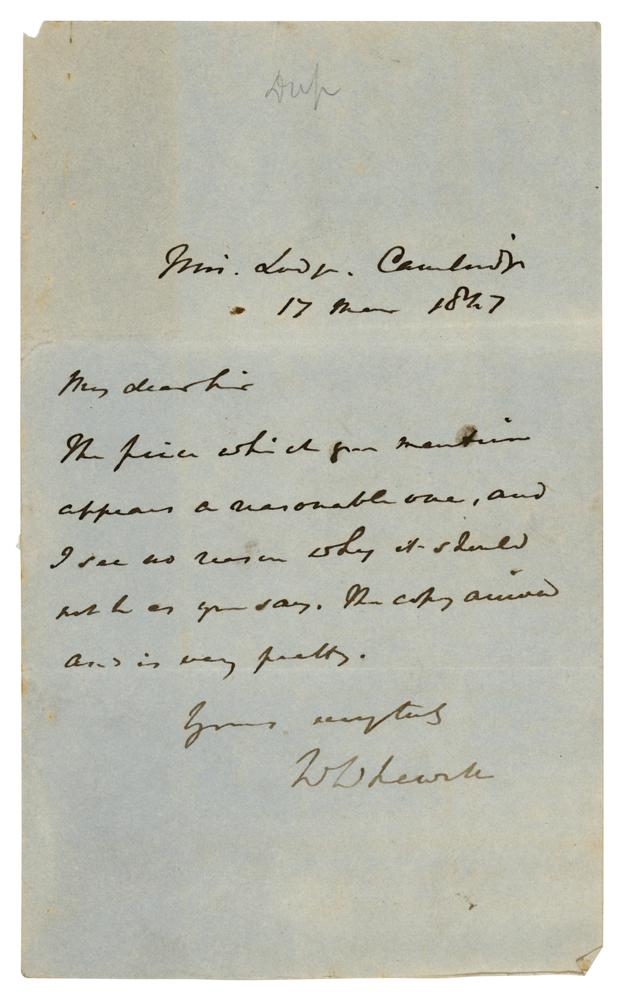 Dup
Trin. Lodge. Cambridge
17 Mar 1847
My dear Sir
The price which you mention
appears a reasonable one, and
I see no reason why it should
not be as you say. The copy arrived
and is very pretty.
Yours very truly
W Whewell